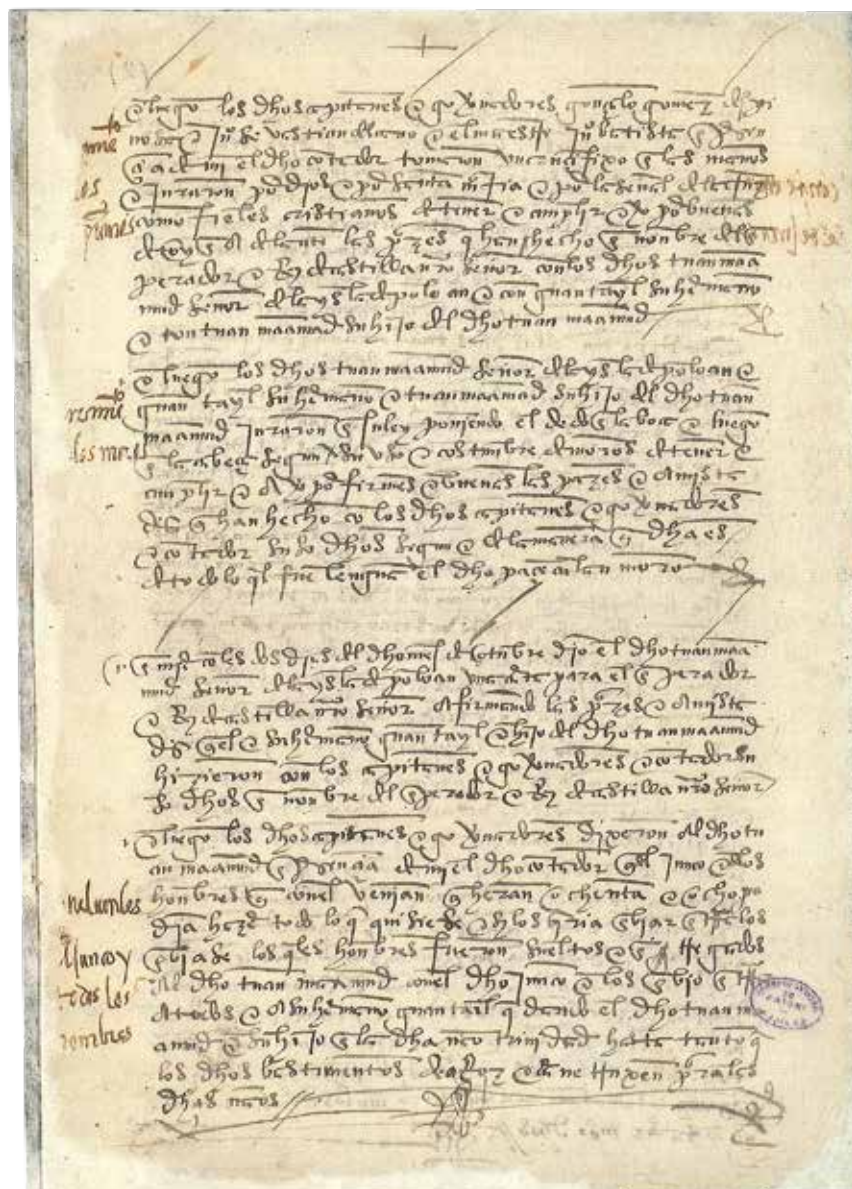 e luego los dhos capitanes e governadores gonçalo gomez despi
nosa e juº sevastian delcano e el maestre juº batista en presen
çia de mi el dho contador tomaron un cruçifixo en las manos
e juraron por dios e por santa maria e por la señal de la cruz
como fieles cristianos de tener e cumplir e aver por buenas
de oy en adelante las pazes que han fecho en nonbre del en
perador e Rey de castilla nro señor con los dhos tuan maa
mud señor de la ysla de poloan e con guantayl su hermano
e con tuan maamad su hijo del dho tuan maamud
juramtº
de los
e luego los dhos tuan maamud señor de la ysla de poloan e
guantayl su hermano e tuan maamad su hijo del dho tuan
maamud juraron en su ley poniendo el dedo en la boca e luego
en la cabeça segun su uso e costumbre de moros de tener e
cumplir e aver por firmes e buenas las pazes e amista
des que han hecho con los dhos capitanes e governadores
e contador suso dhos segun e de la manera que dha es
de todo lo ql fue lengua el dho moro
en miercoles dos dias del dho mes de otubre dio el dho tuan maa
mud señor de la ysla de poloan una carta para el enperador
e Rey de castilla nro señor afirmando las pazes e amista
des quel e su hermano guantayl e hijo del dho tuan maamud
hizieron con los capitanes e governadores e contador su
so dhos en nonbre del enperador e Rey de castilla nro señor
e luego los dhos capitanes e governadores dixeron al dho tu
an maamud en presençia de mi el dho contador quel junco e los
honbres que con el venian que heran ochenta e ocho po
dia hazer todo lo que quisiese e sy los queria enbiar en tierra los
enbiase los quales honbres fueron sueltos e entregados
al dho tuan maamud con el dho junco e los enbio en tierra
a todos e a su hermano guantail quedando el dho tuan ma
amud e su hijo en la dha nao trinidad hasta tanto que
los dhos bastimentos de arroz e carne truxesen para las
dhas naos
buelvenles
el junco y
todos los
honbres